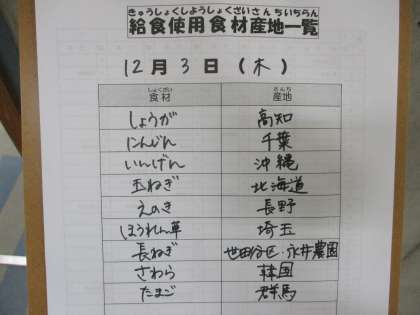 きゅうしょくしようしょくざいさんちいちらん
給食使用食材産地一覧
12月3日(木)
しょくざい さんち
食材 産地
しょうが 高知
にんじん 千葉
いんげん 沖縄
玉ねぎ 北海道
えのき 長野
ほうれん草 埼玉
長ねぎ 世田谷区・永井農園
さわら 韓国
たまご 群馬